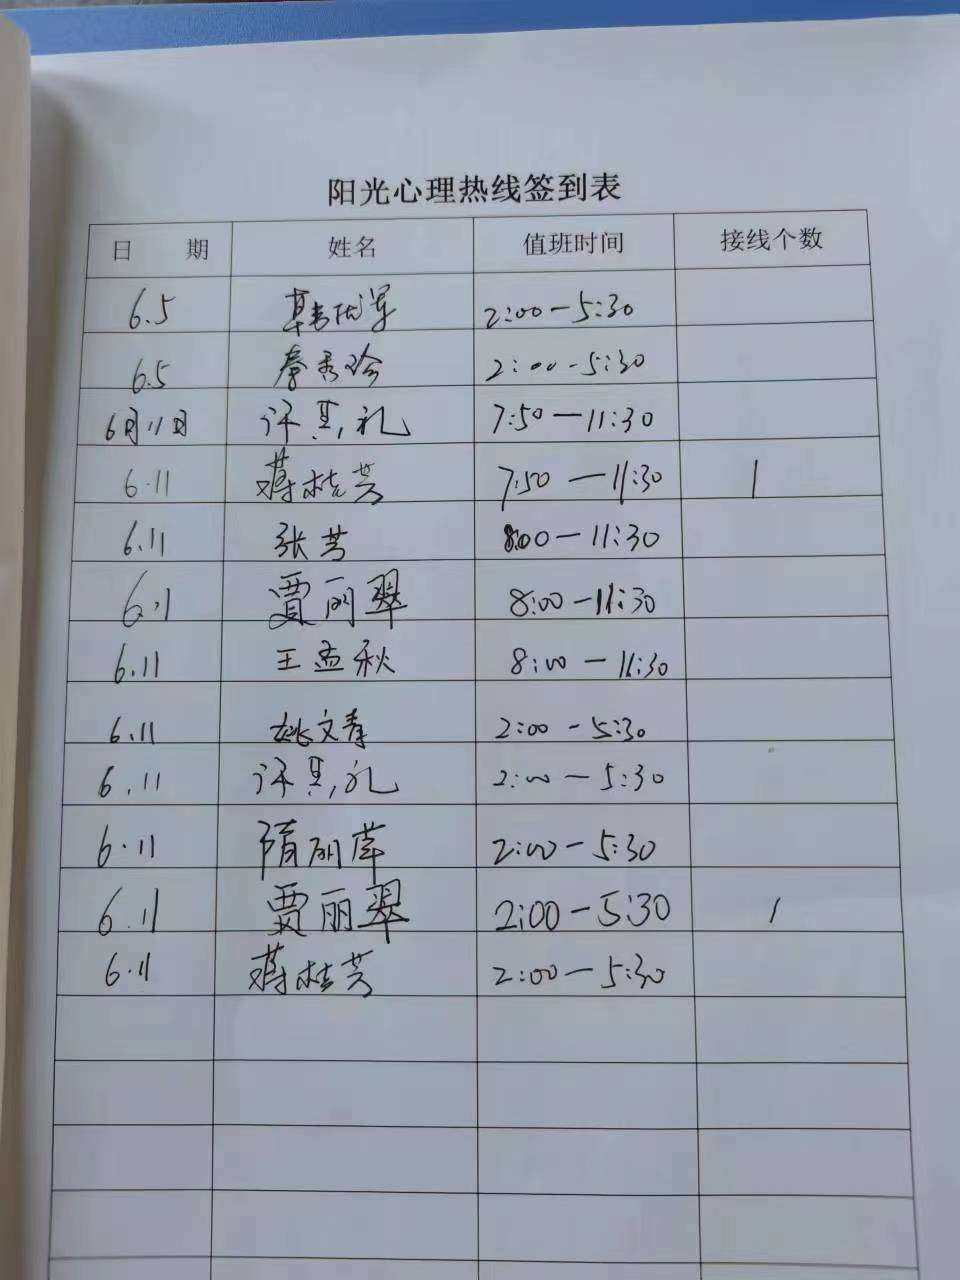 阳光心理热线签到表
日 期 姓名 值班时间 接线个数
6.5 2:00-5:30
6.5 秦秀珍 2:00-5:30
6月11日 许其礼 7:50-11:30
6.11 蒋桂芳 7:50-11:30 1
6.11 张芳 8:00-11:30
6.1 贾丽翠 8:00-11:30
6.11 王孟秋 8:00-11:30
6.11 姚文青 2:00-5:30
6.11 许其礼 2:00-5:30
6.11 隋丽萍 2:00-5:30
6.11 贾丽翠 2:00-5:30 1
6.11 蒋桂芳 2:00-5:30